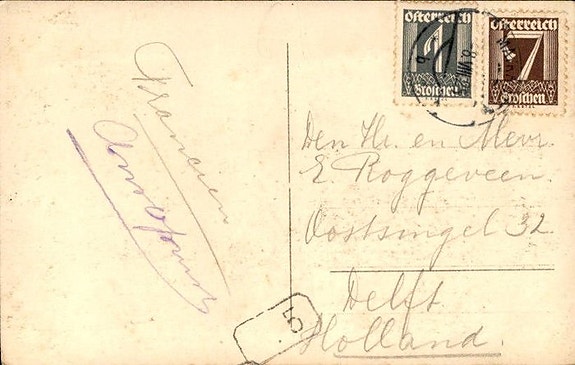 Österreich
1
Groschen
Österreich
7
Groschen
Francien
Den Hr. en Mevr.
E. Roggeveen.
Oostsingel 32
Delft.
Holland.
5